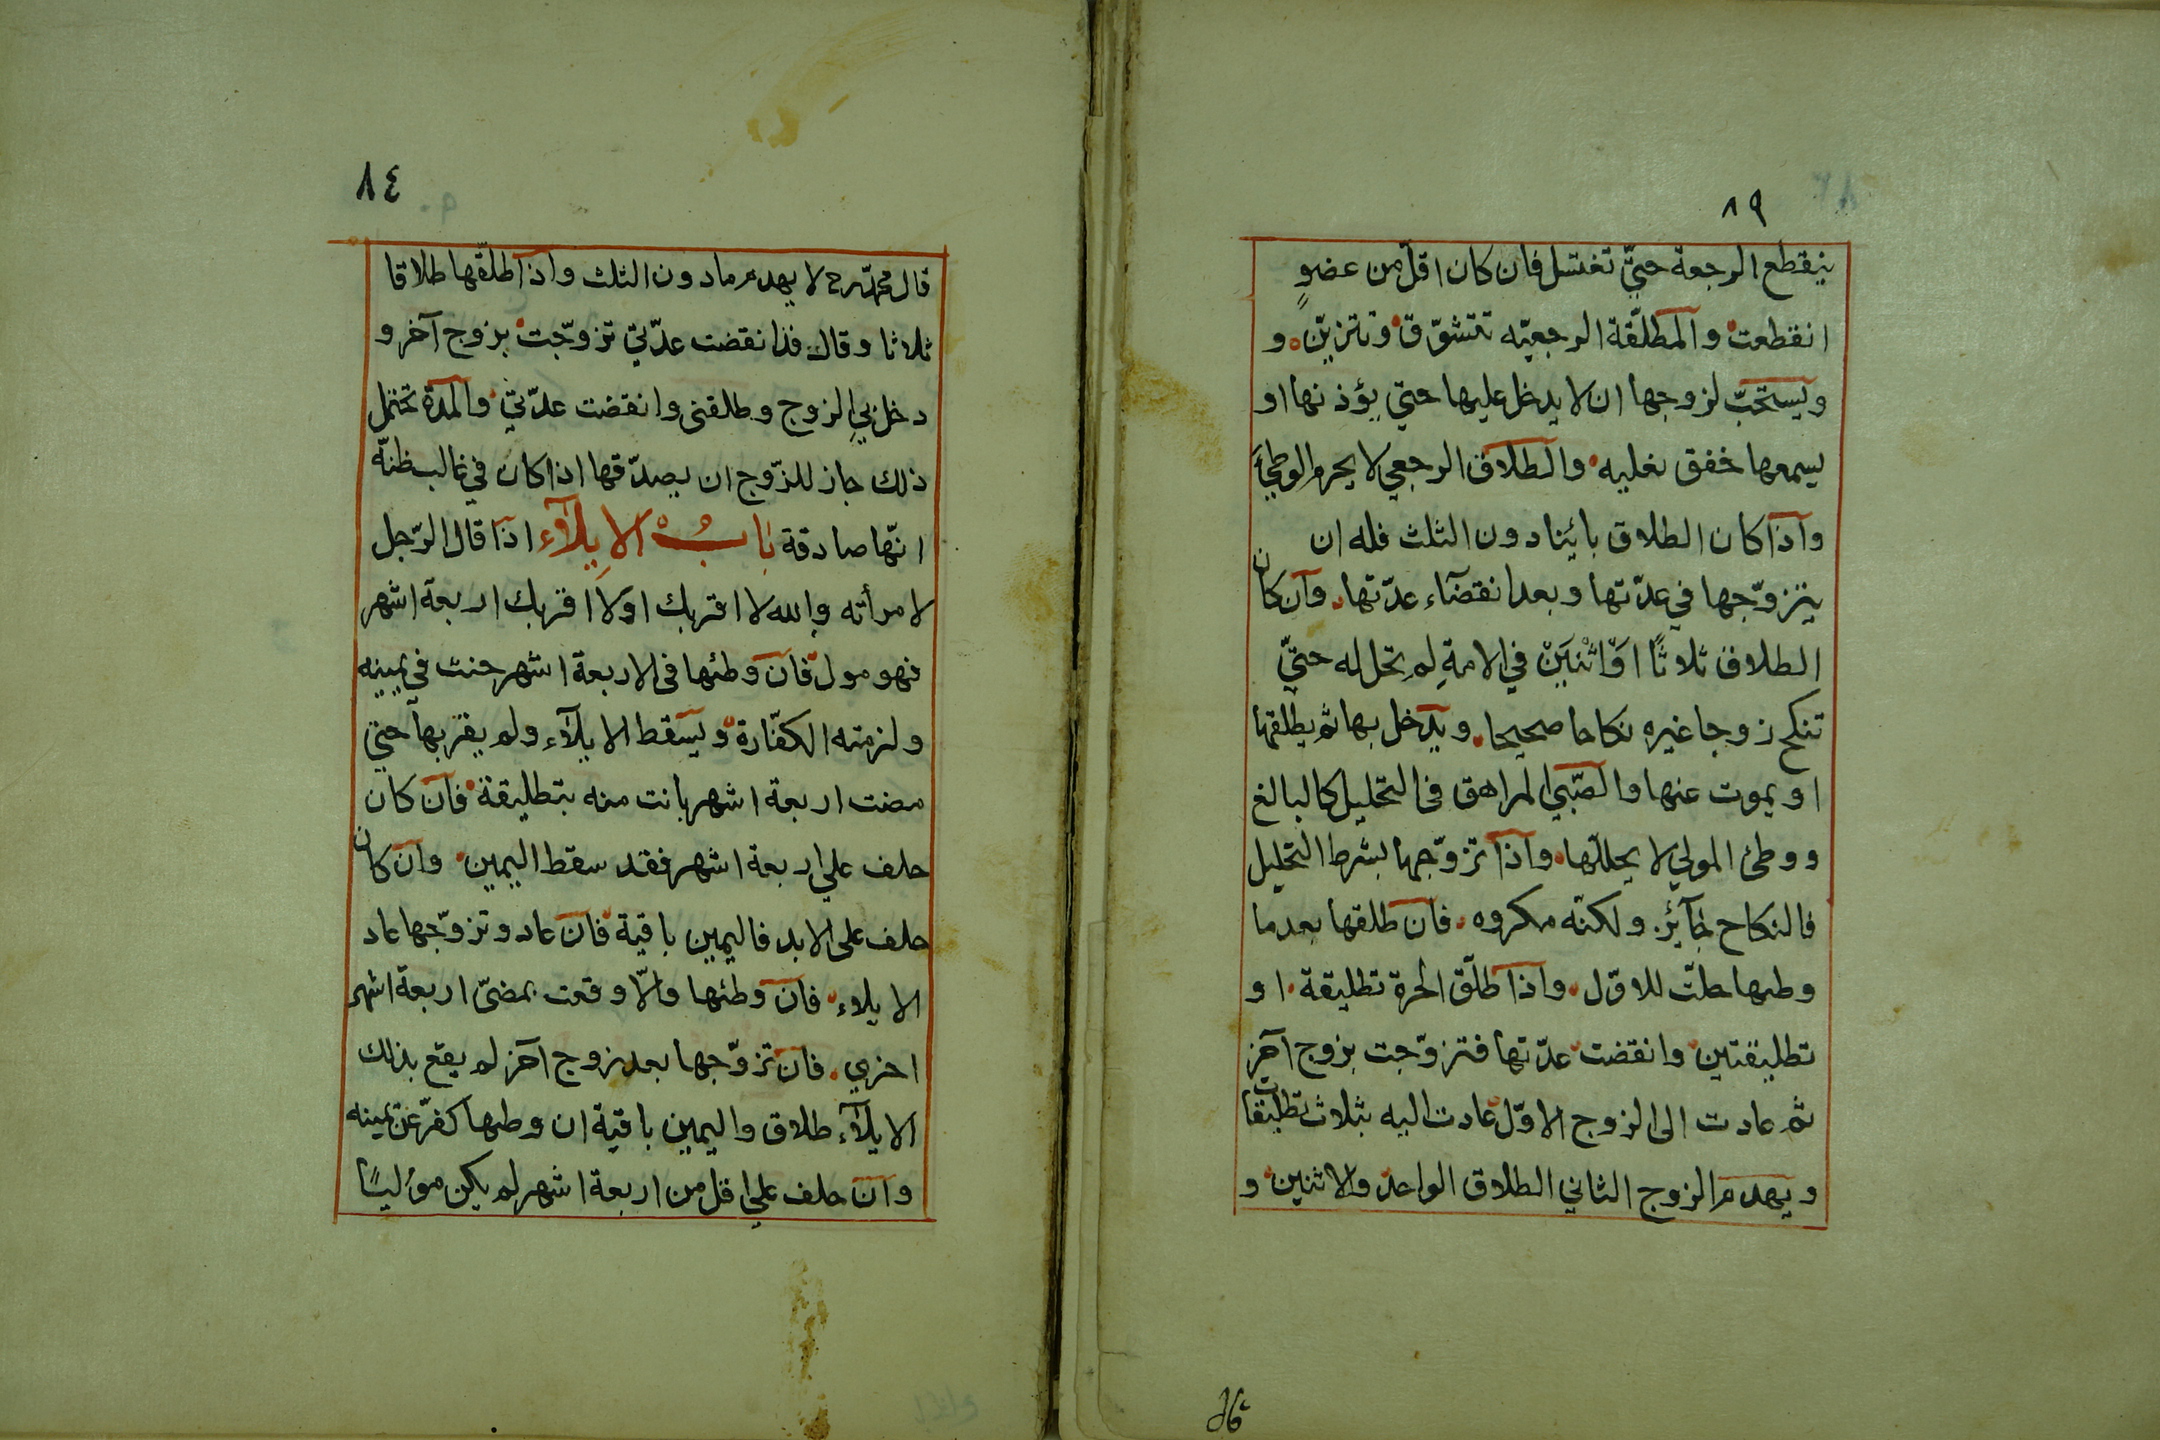 ٨٩
ينقطع الرجعة حتىّ تغتسل فان كان اقلّ من عضوٍ
انقطعت والمطلّقة الرجعيّه تتشوّق وتتزيّن و
ويستحبّ لزوجها ان لا يدخل عليها حتي يؤذنها او
يسمعها خفق نعليه والطلاق الرجعي لا يحرم الوطئ
واذا كان الطلاق بائينا دون الثلث فله ان
يتزوّجها في عدّتها وبعد انقضآء عدّتها وان كان
الطلاق ثلاثًا اوَاثْنَيَنْ في الامةِ لم تحل له حتيّ
تنكح زوجا غيره نكاحا صحيحا ويدخل بها ثم يطلقها
او يموت عنها والصّبي المراهق في التحليل كالبالغ
ووطئ المولي لا يحللّها واذا تزوّجها بشرط التحليل
فالنكاح جآئز ولكنّه مكروه فان طلقها بعد ما
وطىها حلتّ للاوّل واذا طلّق الحرة تطليقة او
تطليقتين وانقضت عدّتها فتزوّجت بزوج آخر
ثم عادت الى الزوج الاوّل عادت اليه بثلاث تطليقات
ويهدم الزوج الثاني الطلاق الواحد والاثنين و
قال
٨٤
قال محمّد رح لا يهدم مادون الثلث واذا طلّقها طلاقا
ثلاثا وقال فذا نقضت عدّتي تزوّجت بزوج آخر و
دخل بي الزوج وطلقنى وانقضت عدّتي والمدّة تحتمل
ذلك جاز للزّوج ان يصدّقها اذا كان في غالب ظنّه
انّها صادقة بابُ الاِيلآء اذا قال الرّجل
لامرأته والله لا اقربك اولا اقربك اربعة اشهر
فهو مول فان وطئها فى الاربعة اشهر حنث في يمينه
ولزمته الكفّارة ويسقط الايلآء ولم يقربها حتي
مضت اربعة اشهر بانت منه بتطليقة فان كان
حلف علي اربعة اشهر فقد سقط اليمين وان كان
حلف على الابد فاليمين باقية فان عاد وتزوّجها عاد
الايلاء فان وطئها والاّ وقعت بمضىّ اربعة اشهر
اخري فان تزوّجها بعد زوج آخر لم يقع بذلك
الايلآء طلاق واليمين باقية ان وطىها كفّر عن يمينه
وان حلف علي اقل من اربعة اشهر لم يكن موليًا